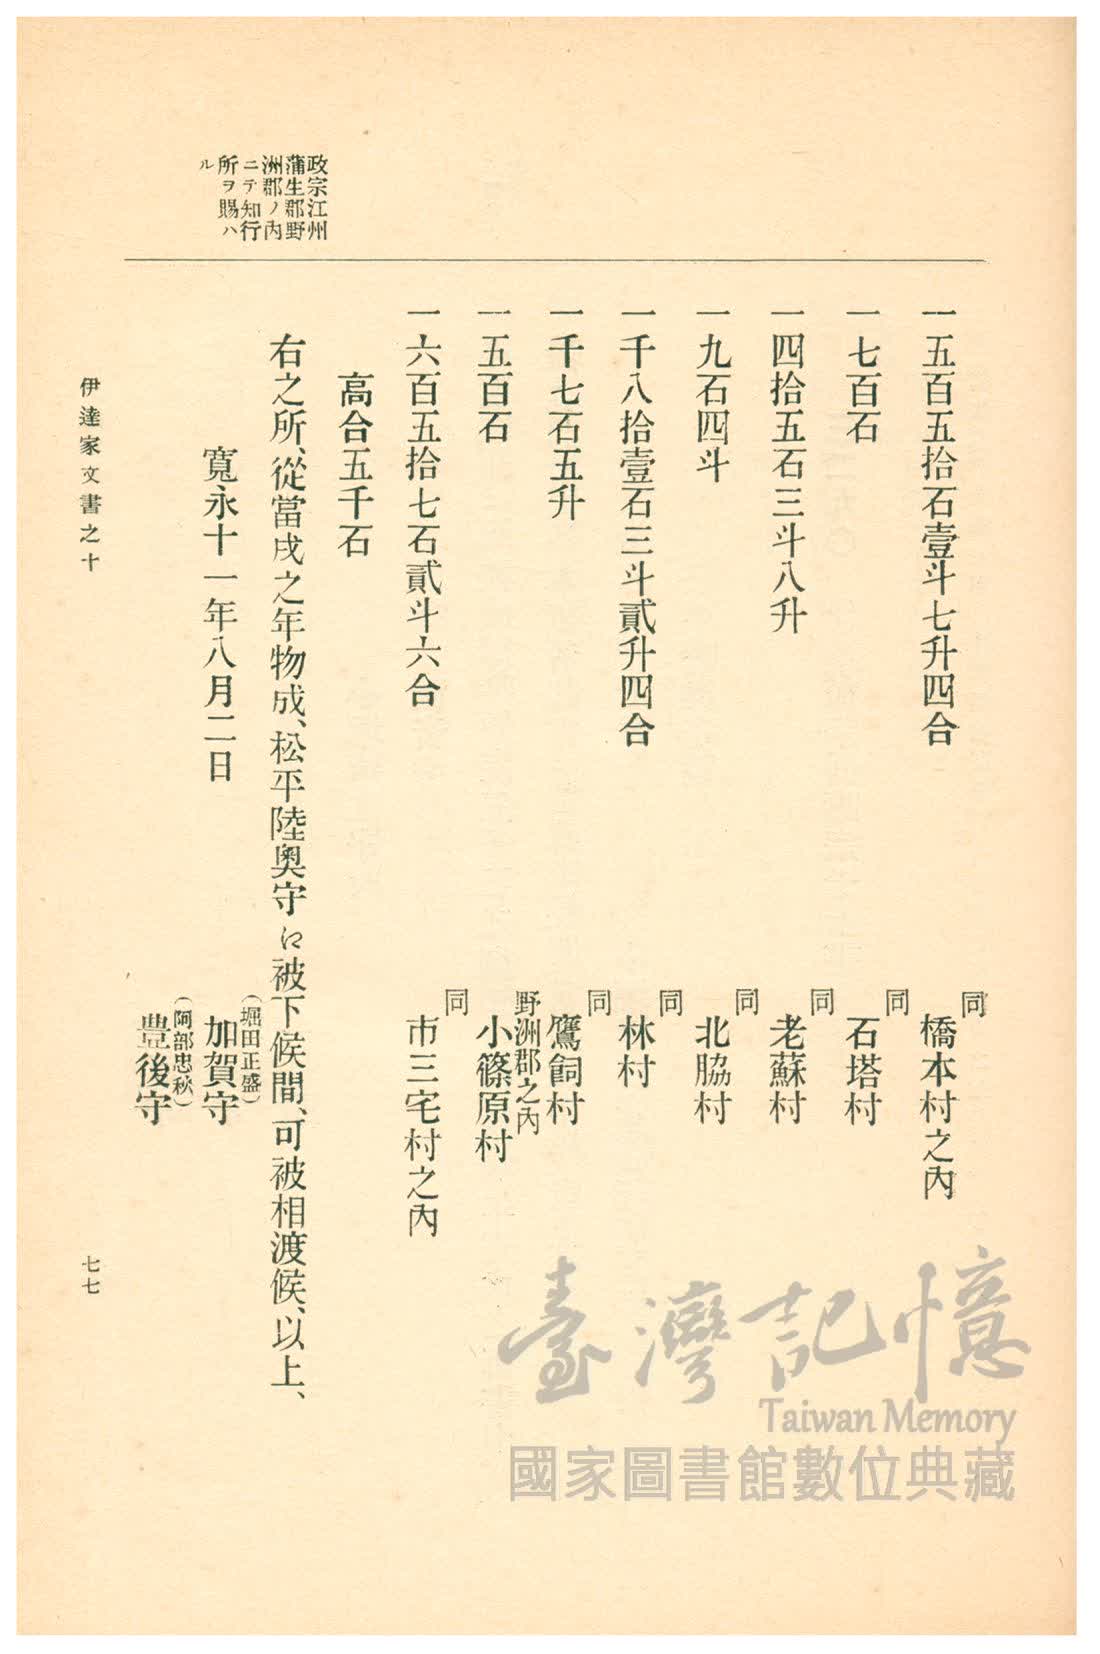 政宗江州
蒲生郡野
洲郡ノ內
ニテ知行
所ヲ賜ハ
ル
一五百五拾石壹斗七升四合 同 橋本村之內
一七百石 同 石塔村
一四拾五石三斗八升 同 老蘇村
一九石四斗 同 北脇村
一千八拾壹石三斗貳升四合 同 林村
一千七石五升 同 鷹飼村
一五百石 野洲郡之內 小篠原村
一六百五拾七石貳斗六合 同 市三宅村之內
高合五千石
右之所、從當戌之年物成、松平陸奧守ニ被下候間、可被相渡候、以上、
寬永十一年八月二日
(堀田正盛)
加賀守
(阿部忠秋)
豊後守
伊達家文書之十
七七
臺灣記憶
Taiwan Memory
國家圖書館數位典藏